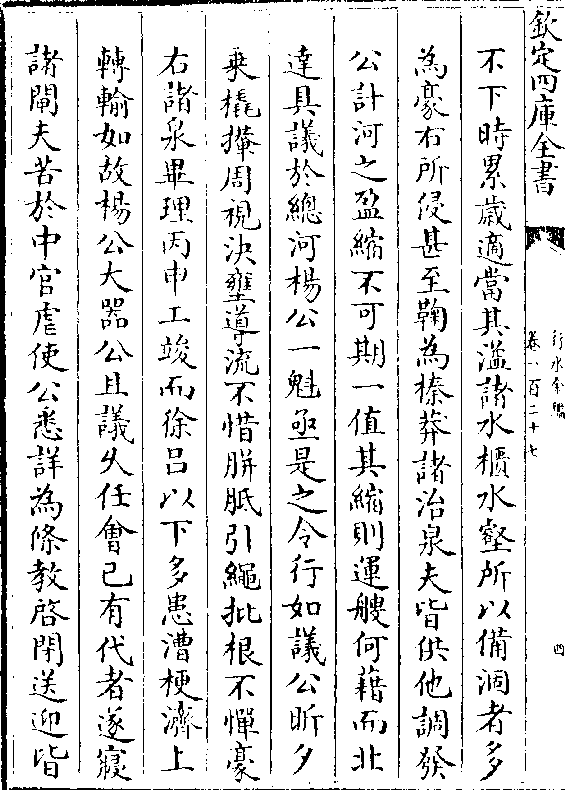 欽定四庫全書
行水金鑑
卷一百二十七
四
不下時累歲適當其溢諸水櫃水壑所以備涸者多
為豪右所侵甚至鞠為榛莽諸治泉夫皆供他調發
公計河之盈縮不可期一值其縮則運艘何藉而北
達具議於總河楊公一魁亟是之令行如議公昕夕
乗橇攆周視決壅導流不惜胼胝引繩批根不憚豪
右諸泉畢理丙申工竣而徐吕以下多患漕梗濟上
轉輸如故楊公大器公且議久任會已有代者遂寢
諸閘夫苦於中官虐使公悉詳為條教啓閉送迎皆